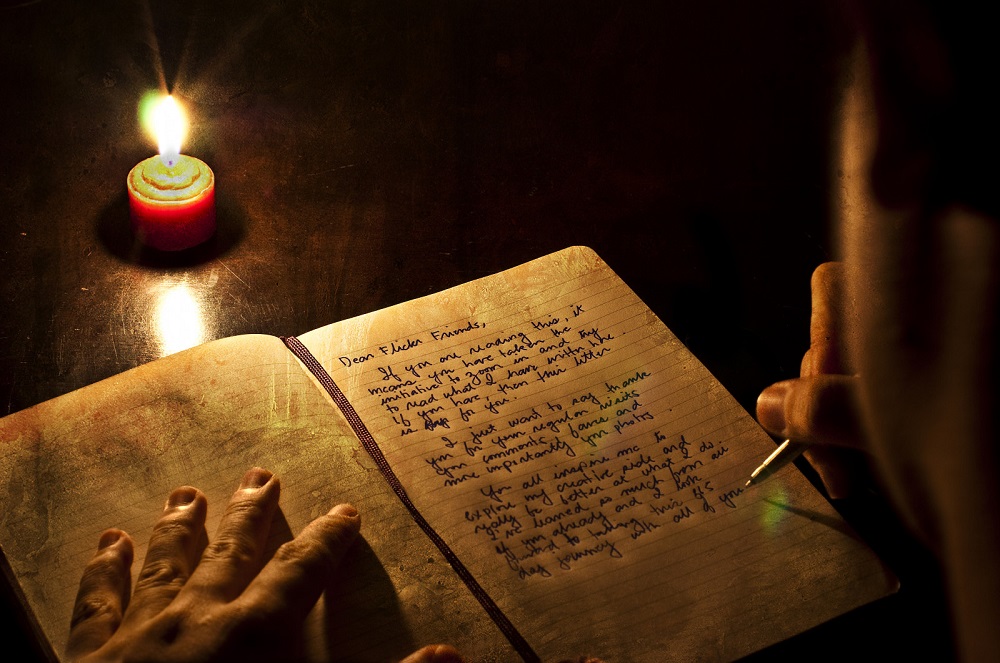 Dear Flickr Friends,
If you are reading this, it
means you have taken the
initiative to zoom in and try
to read what I have written here.
If you have, then this letter
is for you.
I just want to say thanks
you for your regular visits
your comments, faves and
more importantly your photos.
You all inspire me to
explore my creative side and
really be better at what I do.
I've learned so much from all
of you already and I look
forward to taking this 365
day journey with all of you